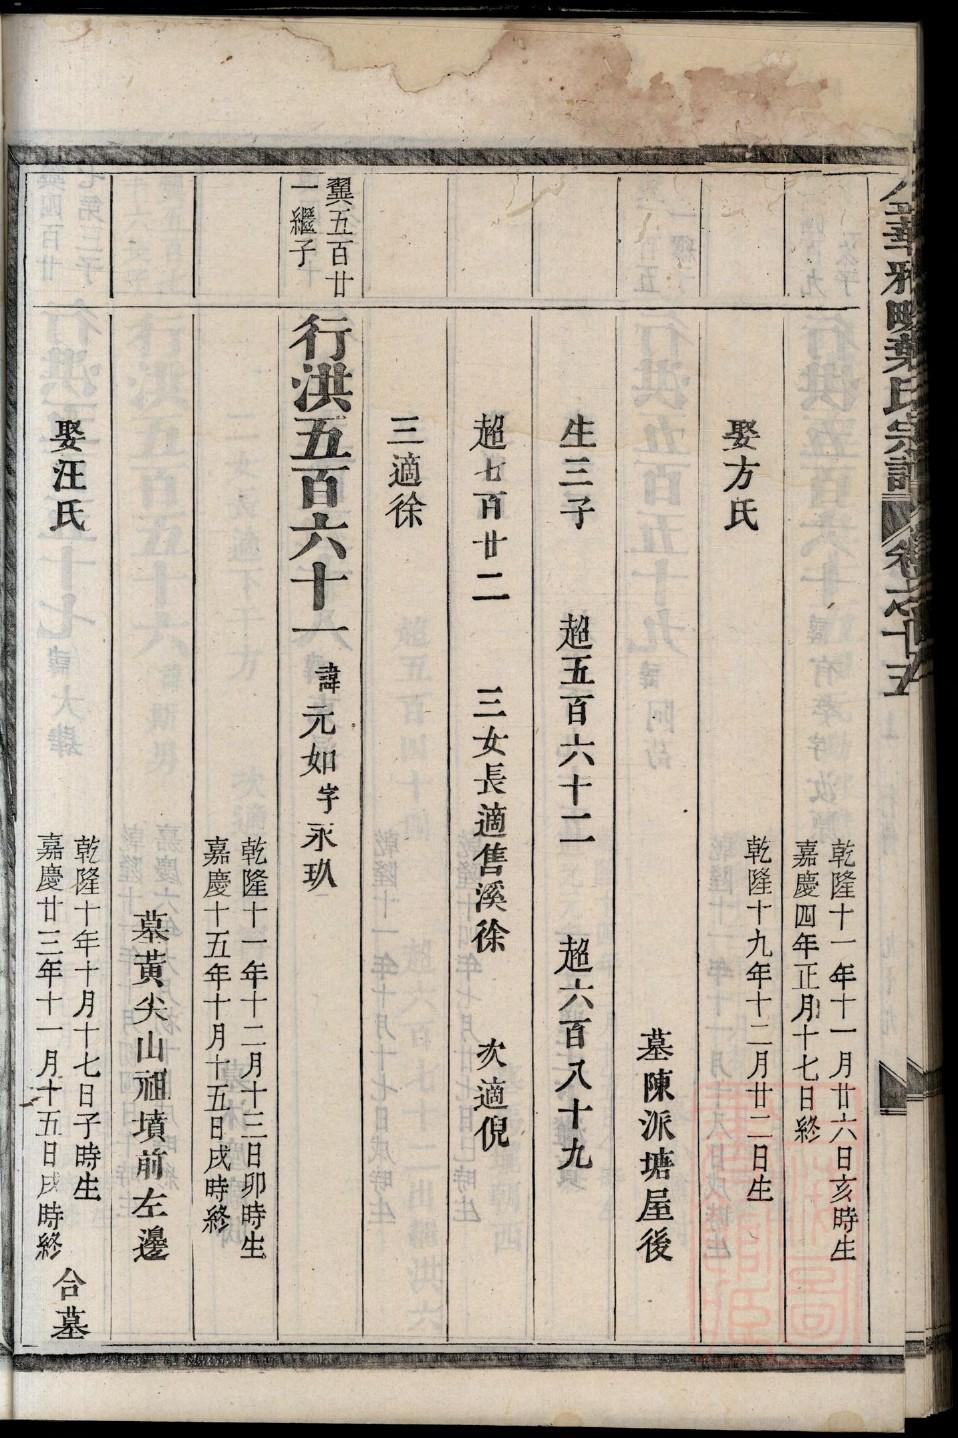 乾隆十一年十一月廿六日亥時生
嘉慶四年正月十七日終
娶方氏
乾隆十九年十二月廿二日生
墓陳派塘屋後
生三子 超五百六十二 超六百八十九
超七百廿二 三女長適售溪徐 次適倪
三適徐
翼五百廿
一繼子
行洪五百六十一 諱元如字永玖
乾隆十一年十二月十三日卯時生
嘉慶十五年十月十五日戌時終
墓黃尖山祖墳前左邊
娶汪氏
乾隆十年十月十七日子時生
嘉慶廿三年十一月十五日戌時終
合墓